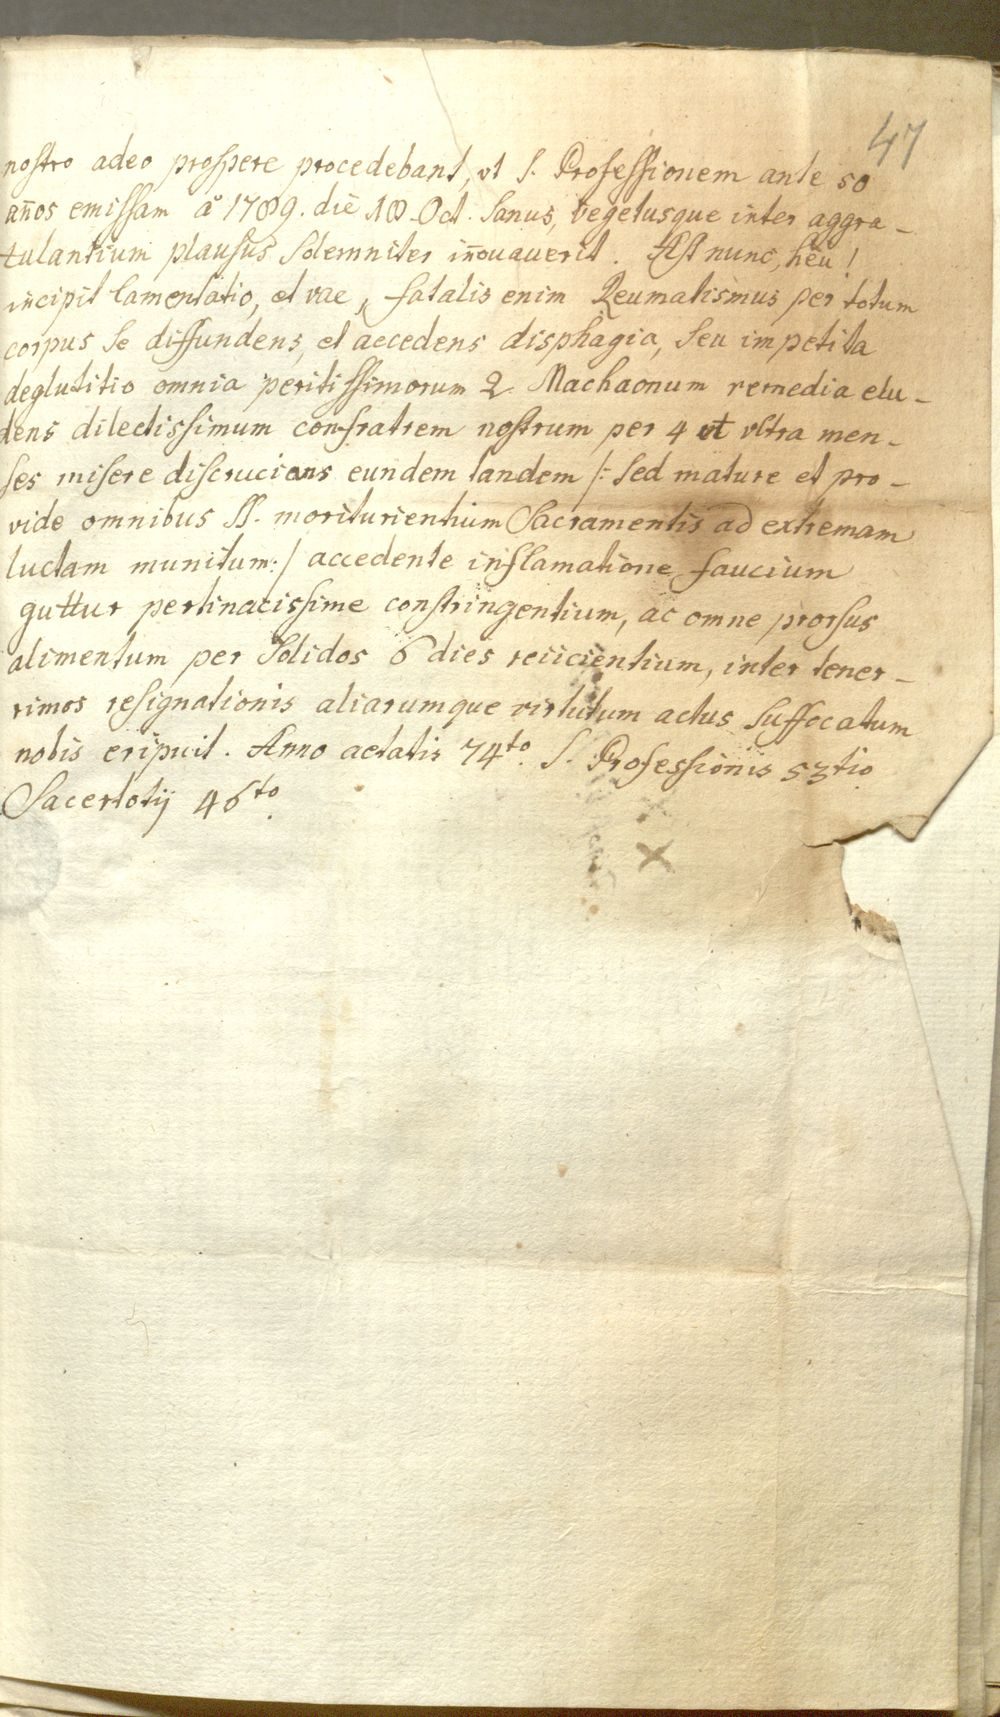 47
nostro adeo prospere procedebant, vt S. Professionem ante 50
an̄os emissam aͦ 1789. die 18. Oct. sanus, vegetusque inter aggra-
tulantium plausus solemniter in̄ouauerit. Ast nunc, heu!
incipit lamentatio, et vae, fatalis enim Reumatismus per totum
corpus se diffundens, et accedens disphagia, seu impetita
deglutitio omnia peritissimorum 2 Machaonum remedia elu-
dens dilectissimum confratrem nostrum per 4 et vltra men-
ses misere discrucians eundem tandem /: sed mature et pro-
vide omnibus SS. moriturientium Sacramentis ad extremam
luctam munitum :/ accedente inflamatione faucium
guttur pertinacissime constringentium, ac omne prorsus
alimentum per solidos 6 dies reiicientium, inter tener-
rimos resignationis aliarumque virtutum actus suffocatum
nobis eripuit. Anno aetatis 74to. S. Professionis 53tio
Sacerdotij 46to.
x